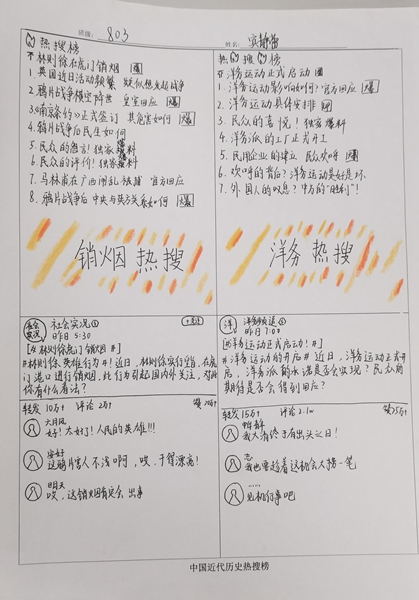 班级: 803
姓名:
热搜榜
林则徐在虎门销烟 爆
1. 英国近日活动频繁 疑似想发起战争
2. 鸦片战争横空降世 皇室回应 爆
3.《南京条约》正式签订 其危害如何 爆
4. 鸦片战争后民生如何
5. 民众的怨言! 独家爆料
6. 民众的评价! 独家爆料
7. 马林甫在广西闹乱被捕 官方回应
8. 鸦片战争后中央与英方关系如何 爆
销烟热搜
热搜榜
洋务运动正式启动
1. 洋务运动影响如何? 官方回应 爆
2. 洋务运动具体安排
3. 民众的喜悦! 独家爆料
4. 洋务派的工厂正式开工
5. 民用企业的建立 民众欢呼
6. 欢呼的背后? 洋务运动是好是坏
7. 外国人的叹息? 中方的"胜利"!
洋务热搜
社会实况
社会实况
昨日 5:30
+关注
[林则徐虎门销烟 #]
#林则徐英雄行为#! 近日, 林则徐实行查, 在虎
门港口进行销烟, 此行为引起国内外关注, 对此
你有什么看法?
转发 10万+ 评论 2万+
六月风
好! 太好了! 人民的英雄!!!
安好
这鸦片害人不浅啊, 唉, 干得漂亮!
明天
哎, 这销烟固肯定会出事
洋
洋务频道
昨日 7:09
[洋务运动正式启动! #]
#洋务运动的开启# 近日, 洋务运动正式开
启, 洋务派的承诺是否会兑现? 民众的
期待是否会得到回应?
转发 15万+ 评论 2.1w 赞25万+
我大清终于有出头之日!
志
我也要趁着这机会大捞一笔
见机行事吧
中国近代历史热搜榜